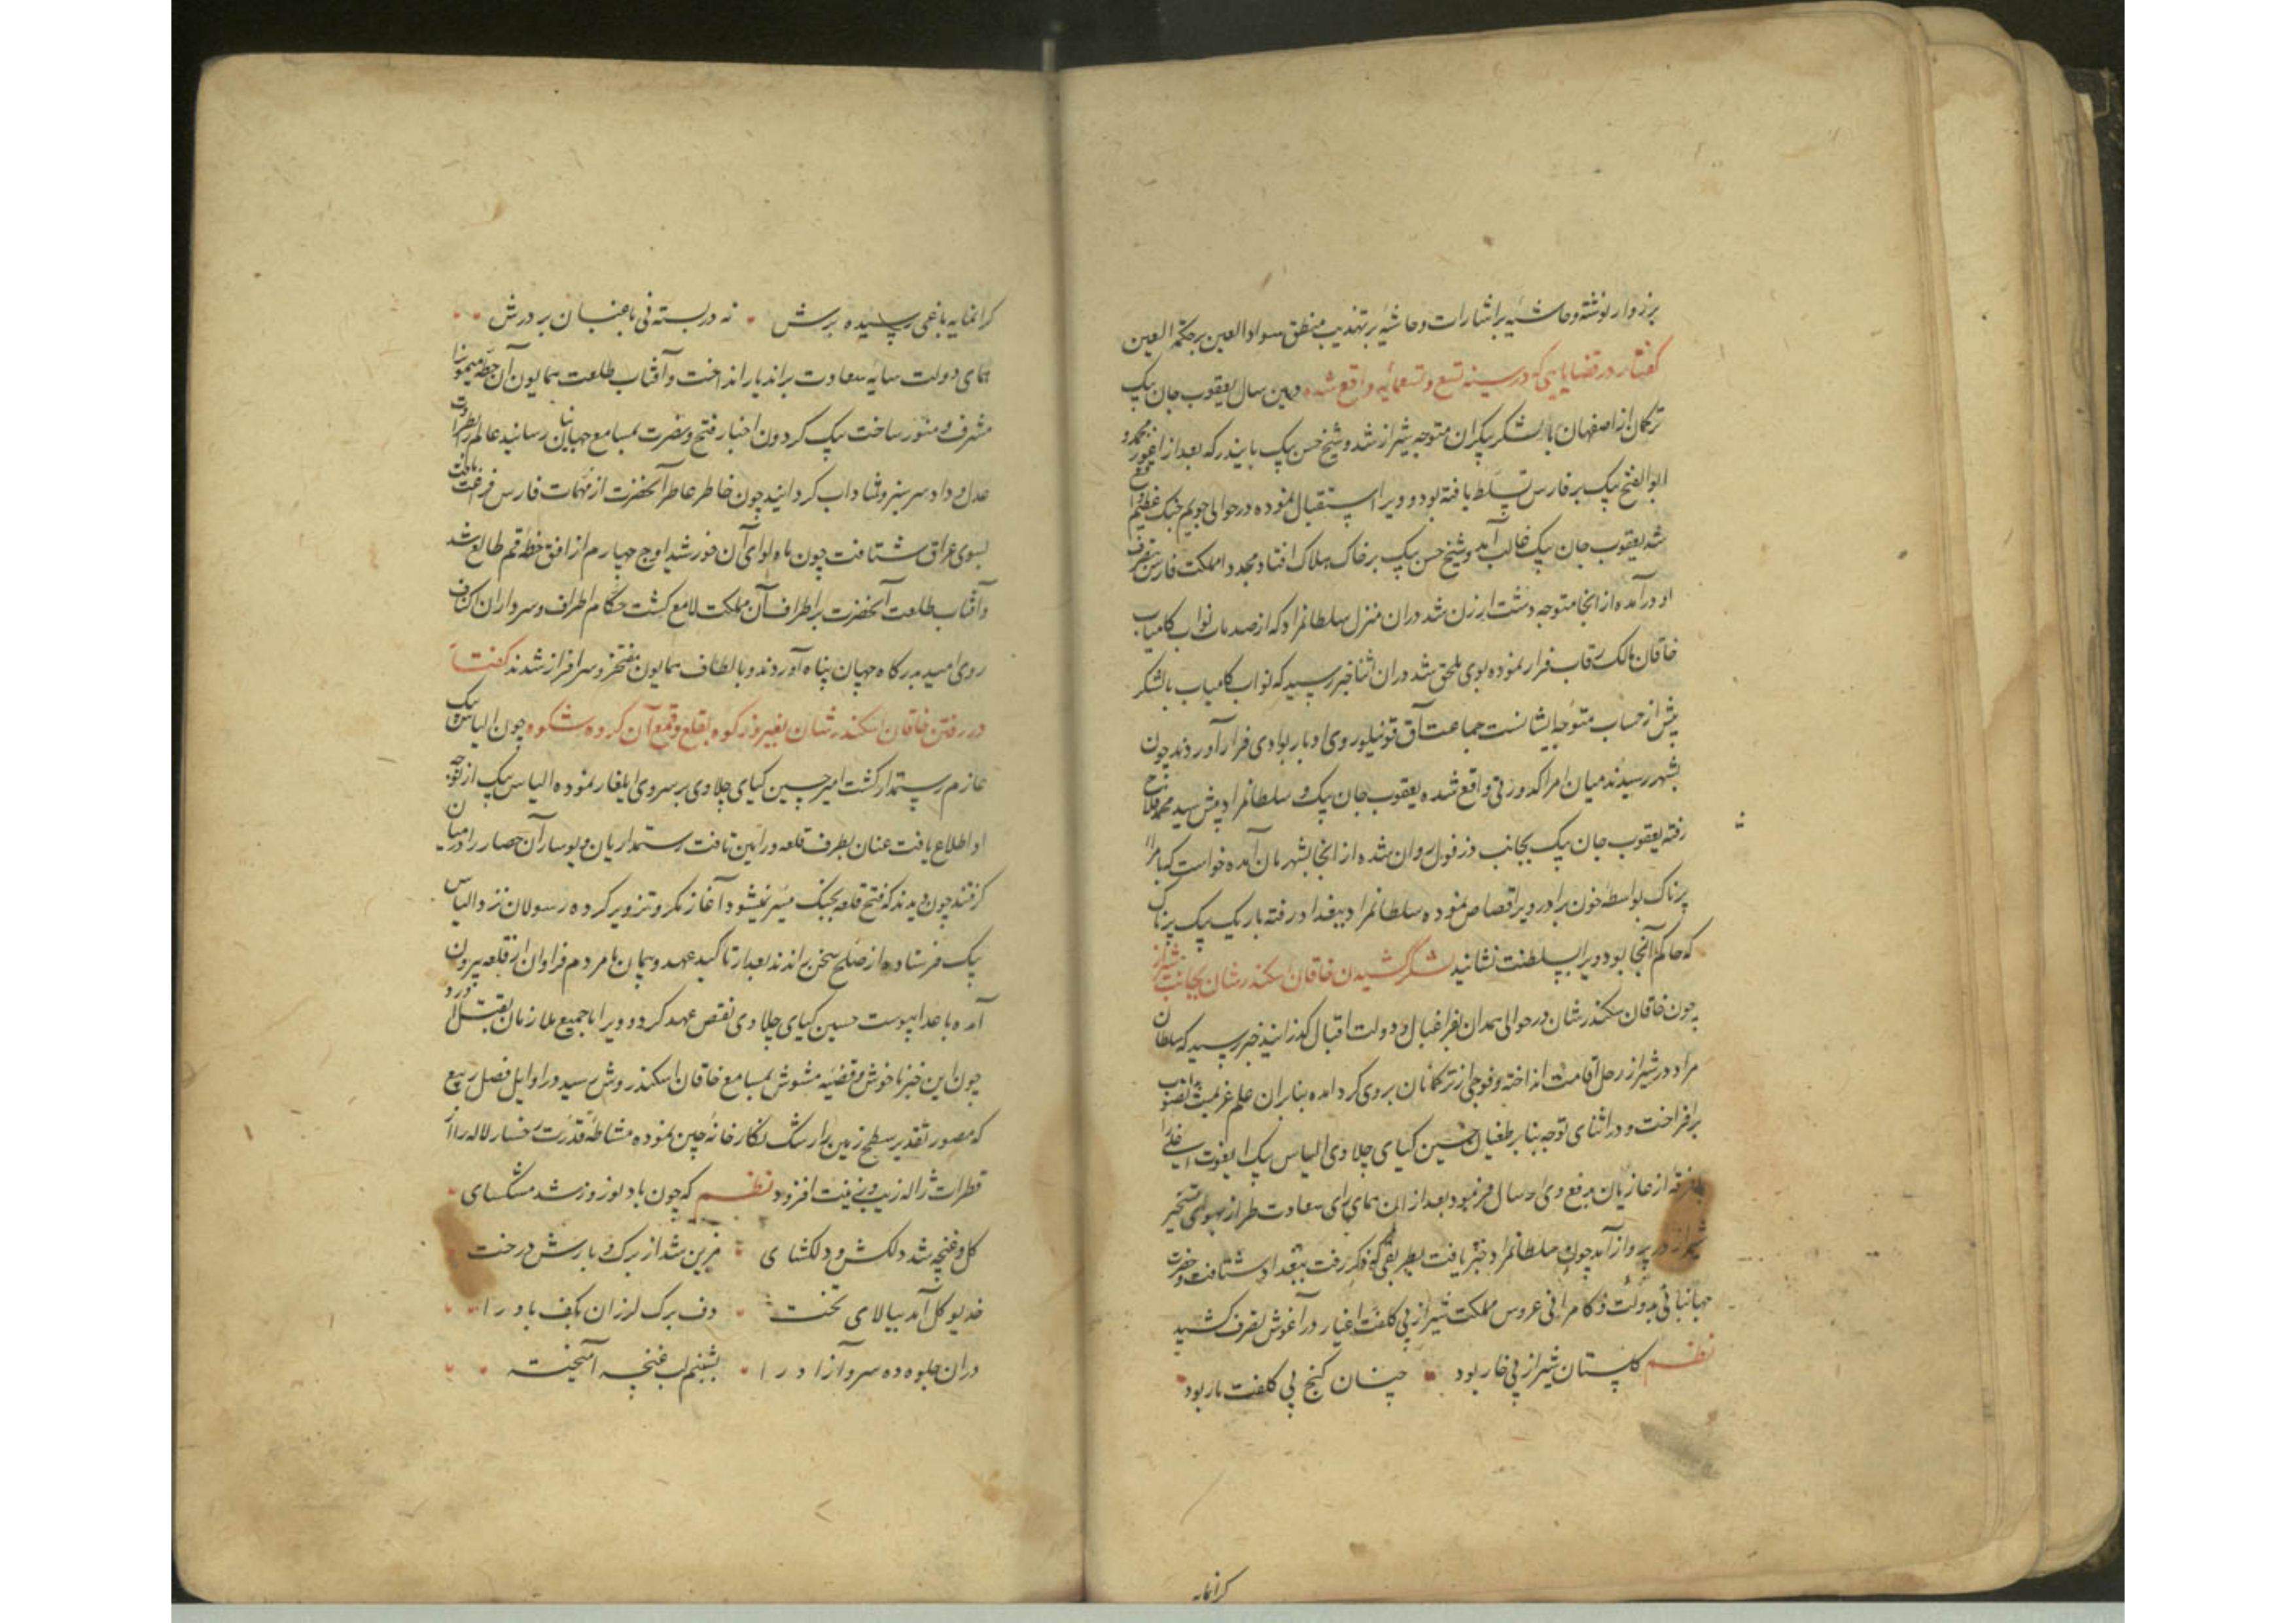 برزوار نوشته و حاشیه بر اشارات و حاشیه بر تهذیب منطق سواد العین بر حکمة العین
گفتار در قضایایی که در سنه تسع و تسعمائه واقع شده درین سال یعقوب جان بیک
ترکمان از اصفهان با لشکر بیکران متوجه شیراز شد و شیخ حسن بیک بایندر که بعد از محمدی و
ابوالفتح بیک بر فارس تسلط یافته بود ویرا استقبال نموده در حوالی جویم جنگ عظیم واقع
شد یعقوب جان بیک غالب آمد و شیخ حسن بیک بر خاک هلاک افتاد مجددا مملکت فارس بتصرف
او درآمده از انجا متوجه دشت ارزن شد دران منزل سلطانمراد که از صدمات نواب کامیاب
خاقان مالک رقاب فرار نموده بوی ملحق شد دران اثنا خبر رسید که نواب کامیاب با لشکر
بیش از حساب متوجه ایشانست جماعت آق قوینلو روی ادبار بوادی فرار آوردند چون
بشهر رسیدند میان امرا کدورتی واقع شده یعقوب جان بیک و سلطانمراد پیش سید محمد فلاح
رفته یعقوب جان بیک بجانب دزفول روان شده از انجا بشهر مان آمده خواست که بامرا
پرناک بواسطه خون برادر ویرا قصاص نموده سلطانمراد ببغداد رفته باریک بیک پرناک
که حاکم آنجا بود ویرا بسلطنت نشانید لشکر کشیدن خاقان اسکندرشان بجانب شیراز
چون خاقان سکندرشان در حوالی همدان بفراغبال و دولت اقبال گذرانید خبر رسید که سلطان
مراد در شیراز رحل اقامت انداخته و فوجی از ترکمانان بر وی گرد آمده بنابران علم عزیمت بدانصوب
برافراخت و در اثنای توجه بنابر طغیان حسین کیای چلاوی الیاس بیک ایغوت اغلی را
با فرقه از غازیان بدفع وی ارسال فرمود بعد از ان همای رای سعادت طراز بهوای تسخیر
شیراز در پرواز آمد چون سلطانمراد خبر یافت بطریقی که ذکر رفت ببغداد شتافت و حضرت
جهانبانی بدولت و کامرانی عروس مملکت شیراز بی کلفت اغیار در آغوش تصرف کشید
نظم گلستان شیراز بی خار بود چنان گنج بی کلفت مار بود
گرانمایه
گرانمایه باغی رسیده برش نه در بسته نی باغبان بر درش
همای دولت سایه سعادت براندیار انداخت و آفتاب طلعت همایون آن خطه میمونرا
مشرف و منور ساخت پیک گردون اخبار فتح و نصرت بمسامع جهانیان رسانید عالم را بقطرات
عدل و داد سرسبز و شاداب گردانید چون خاطر عاطر آنحضرت از مهمات فارس فراغت یافت
بسوی عراق شتافت چون ماه لوای آن خورشید اوج چهارم از افق خطه قم طالع شد
و آفتاب طلعت آنحضرت بر اطراف آن مملکت لامع گشت حکام اطراف و سرداران اکناف
روی امید بدرگاه جهان پناه آوردند و بالطاف همایون مفتخر و سرافراز شدند گفتار
در رفتن خاقان اسکندرشان بفیروزکوه بقلع و قمع آن گروه شکوه چون الیاس بیک
عازم رستمدار گشت امیر حسین کیای چلاوی بر سر وی ایلغار نموده الیاس بیک از توجه
او اطلاع یافت عنان بطرف قلعه ورامین تافت رستمداریان و پوساران حصار را درمیان
گرفتند چون دیدند که فتح قلعه بجنگ میسر نمیشود آغاز مکر و تزویر کرده رسولان نزد الیاس
بیک فرستاده از صلح سخن براندند بعد از تاکید عهد و پیمان با مردم فراوان از قلعه بیرون
آمده باعدا پیوست حسین کیای چلاوی نقض عهد کرد و ویرا با جمیع ملازمان بقتل آورد
چون این خبر ناخوش و قضیه مشوش بمسامع خاقان اسکندر وش رسید در اوایل فصل ربیع
که مصور تقدیر سطح زمین را رشک نگارخانه چین نموده مشاطه قدرت رخسار لاله را از
قطرات ژاله زیب و زینت افزود نظم که چون باد نوروز شد مشکسای
گل و غنچه شد دلکش و دلگشای مزین شد از برگ و بارش درخت
خدیو گل آمد ببالای تخت دف برگ لرزان بکف باد را
دران جلوه ده سرو آزاد را بشبنم لب غنچه آمیخته